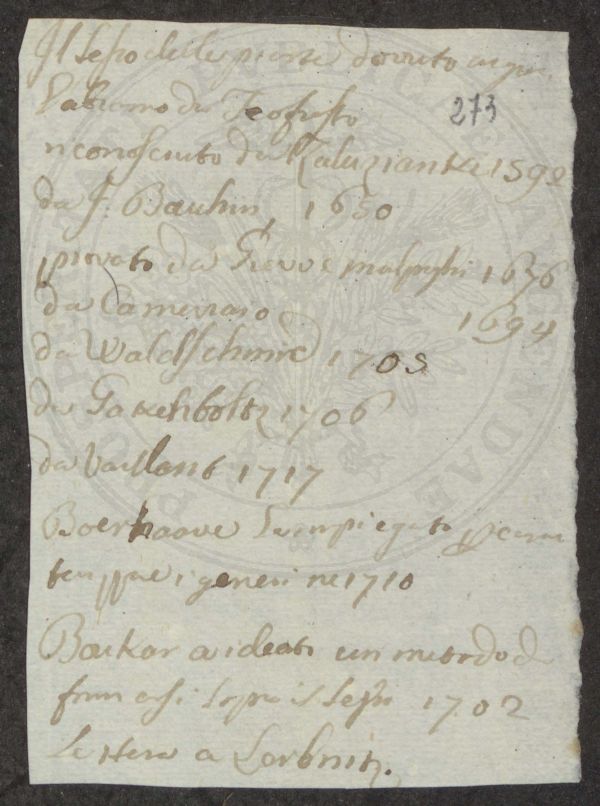 Il sesso delle piante dovuto a
da Teofrasto
273
riconosciuto da Zaluzianki 1592
da J. Bauhin 1650
provato da Grew e malpighi 1676
da Camerario 1694
da Waldschmid 1705
da Gakenholtz 1706
da Vaillant 1717
Boerhaave la impiegato per carat
terizzare i generi ne 1710
Burkar a ideato un metodo di
sopra il sesso 1702
Lettera a Leibnitz.